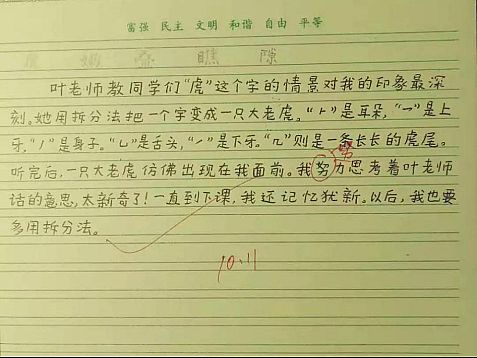 富强 民主 文明 和谐 自由 平等
瞧 隙
叶老师教同学们“虎”这个字的情景对我的印象最深
刻。她用拆分法把一个字变成一只大老虎。“⺊”是耳朵,“乛”是上
牙,“丿”是身子。“乚”是舌头,“㇀”是下牙。“⺄”则是一条长长的虎尾。
听完后,一只大老虎仿佛出现在我面前。我努力思考着叶老师
话的意思,太新奇了!一直到下课,我还记忆犹新。以后,我也要
多用拆分法。
10.11